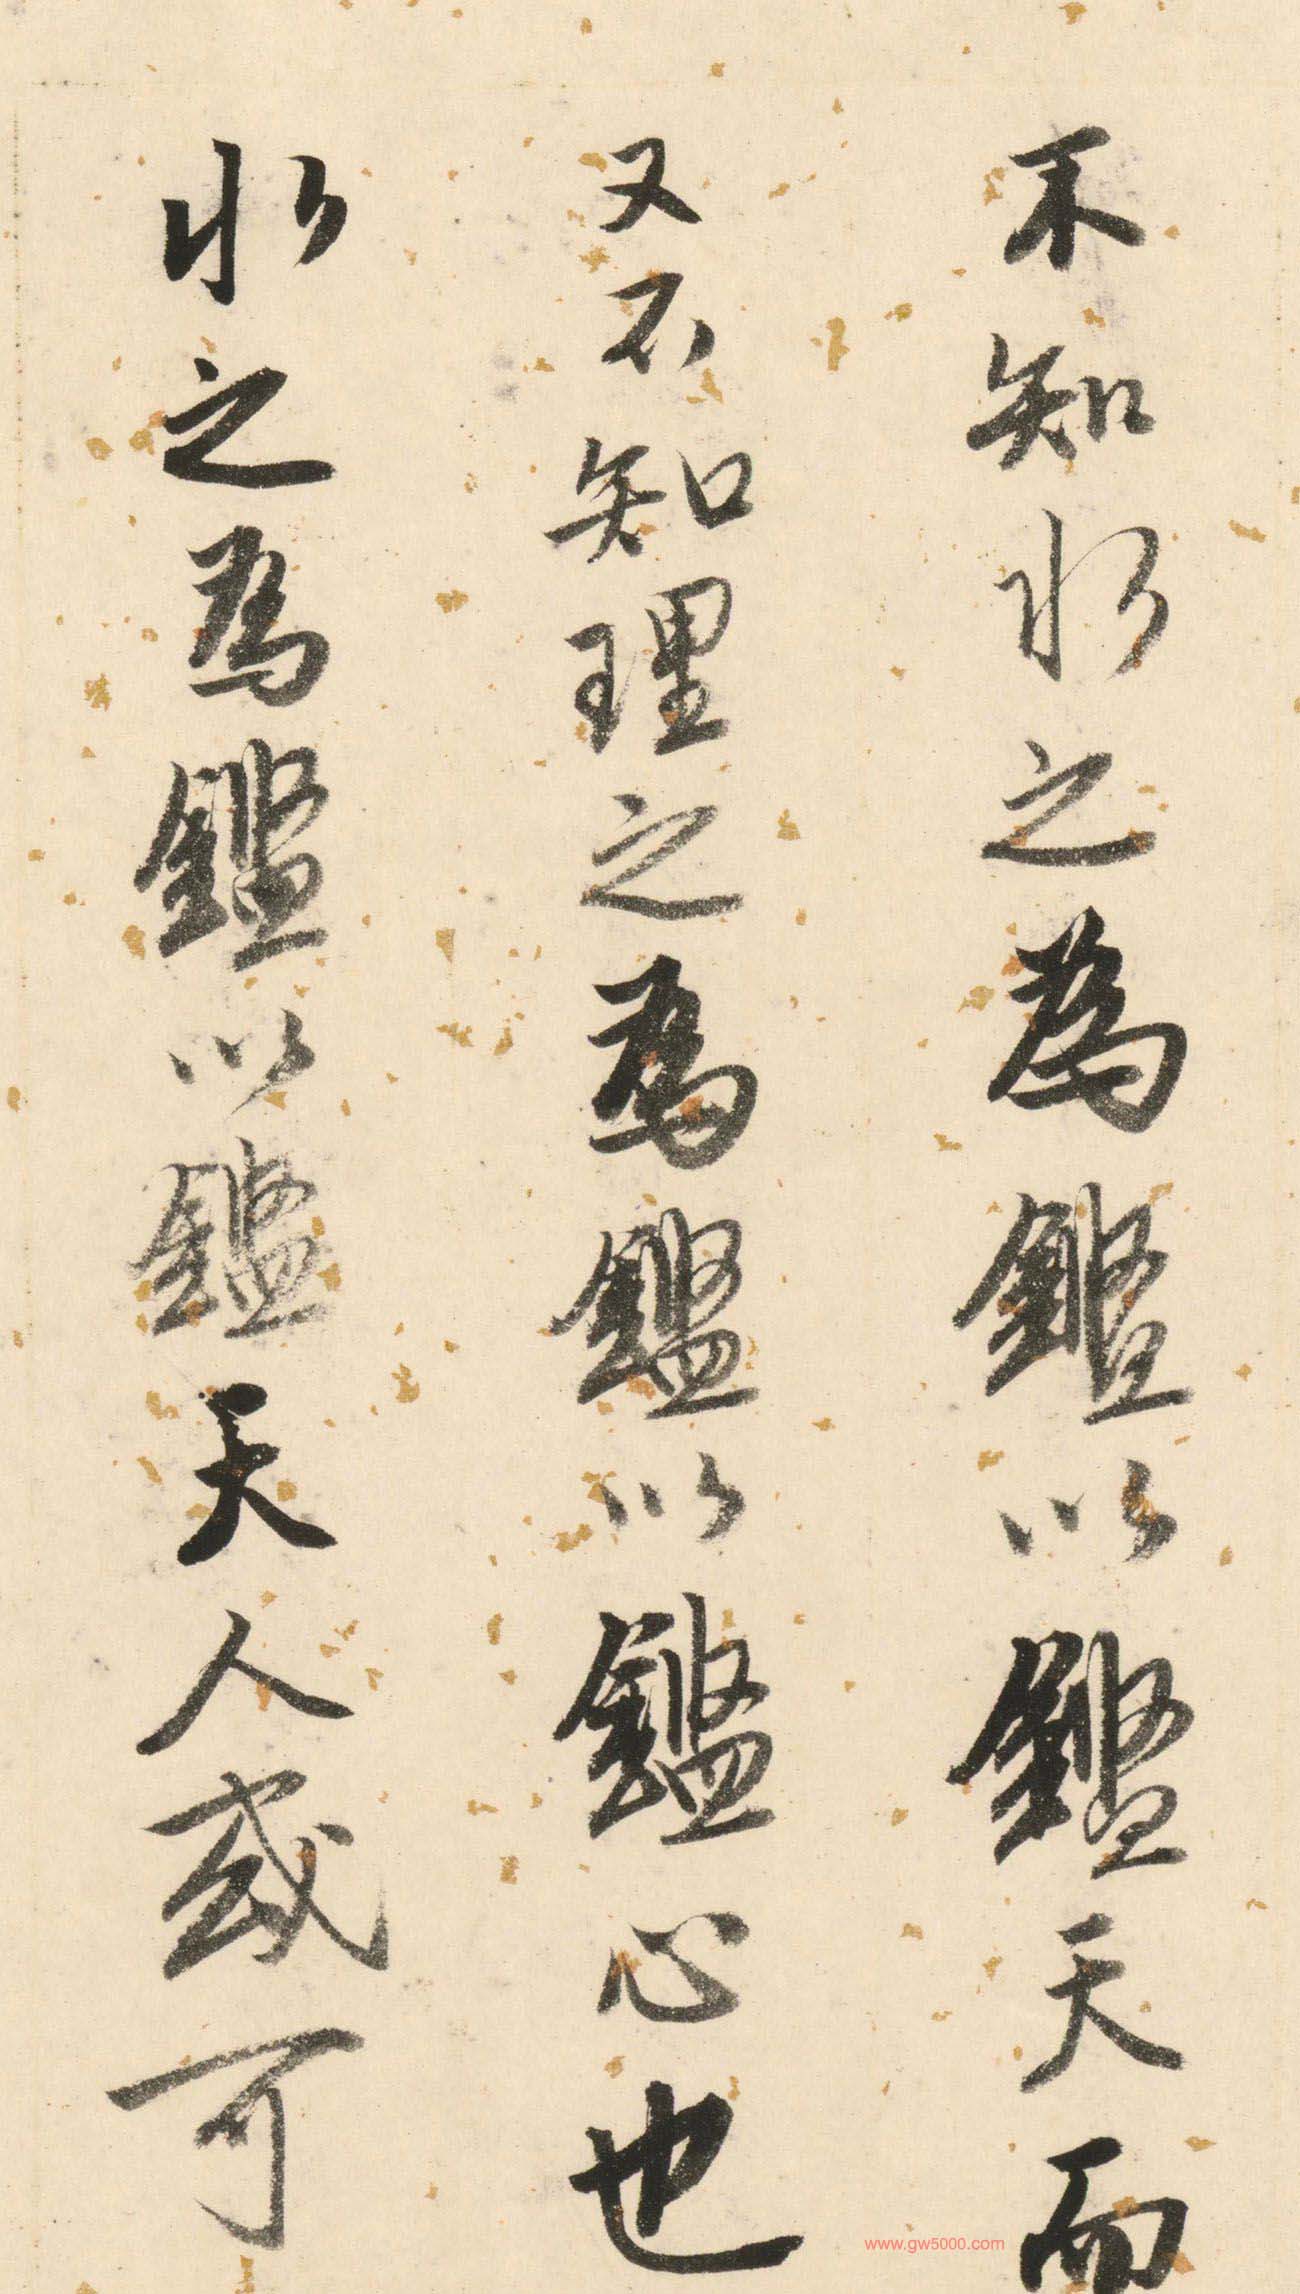 不知水之為鑑以鑑天而
又不知理之為鑑以鑑心也
水之為鑑以鑑天人或可
www.gw5000.com